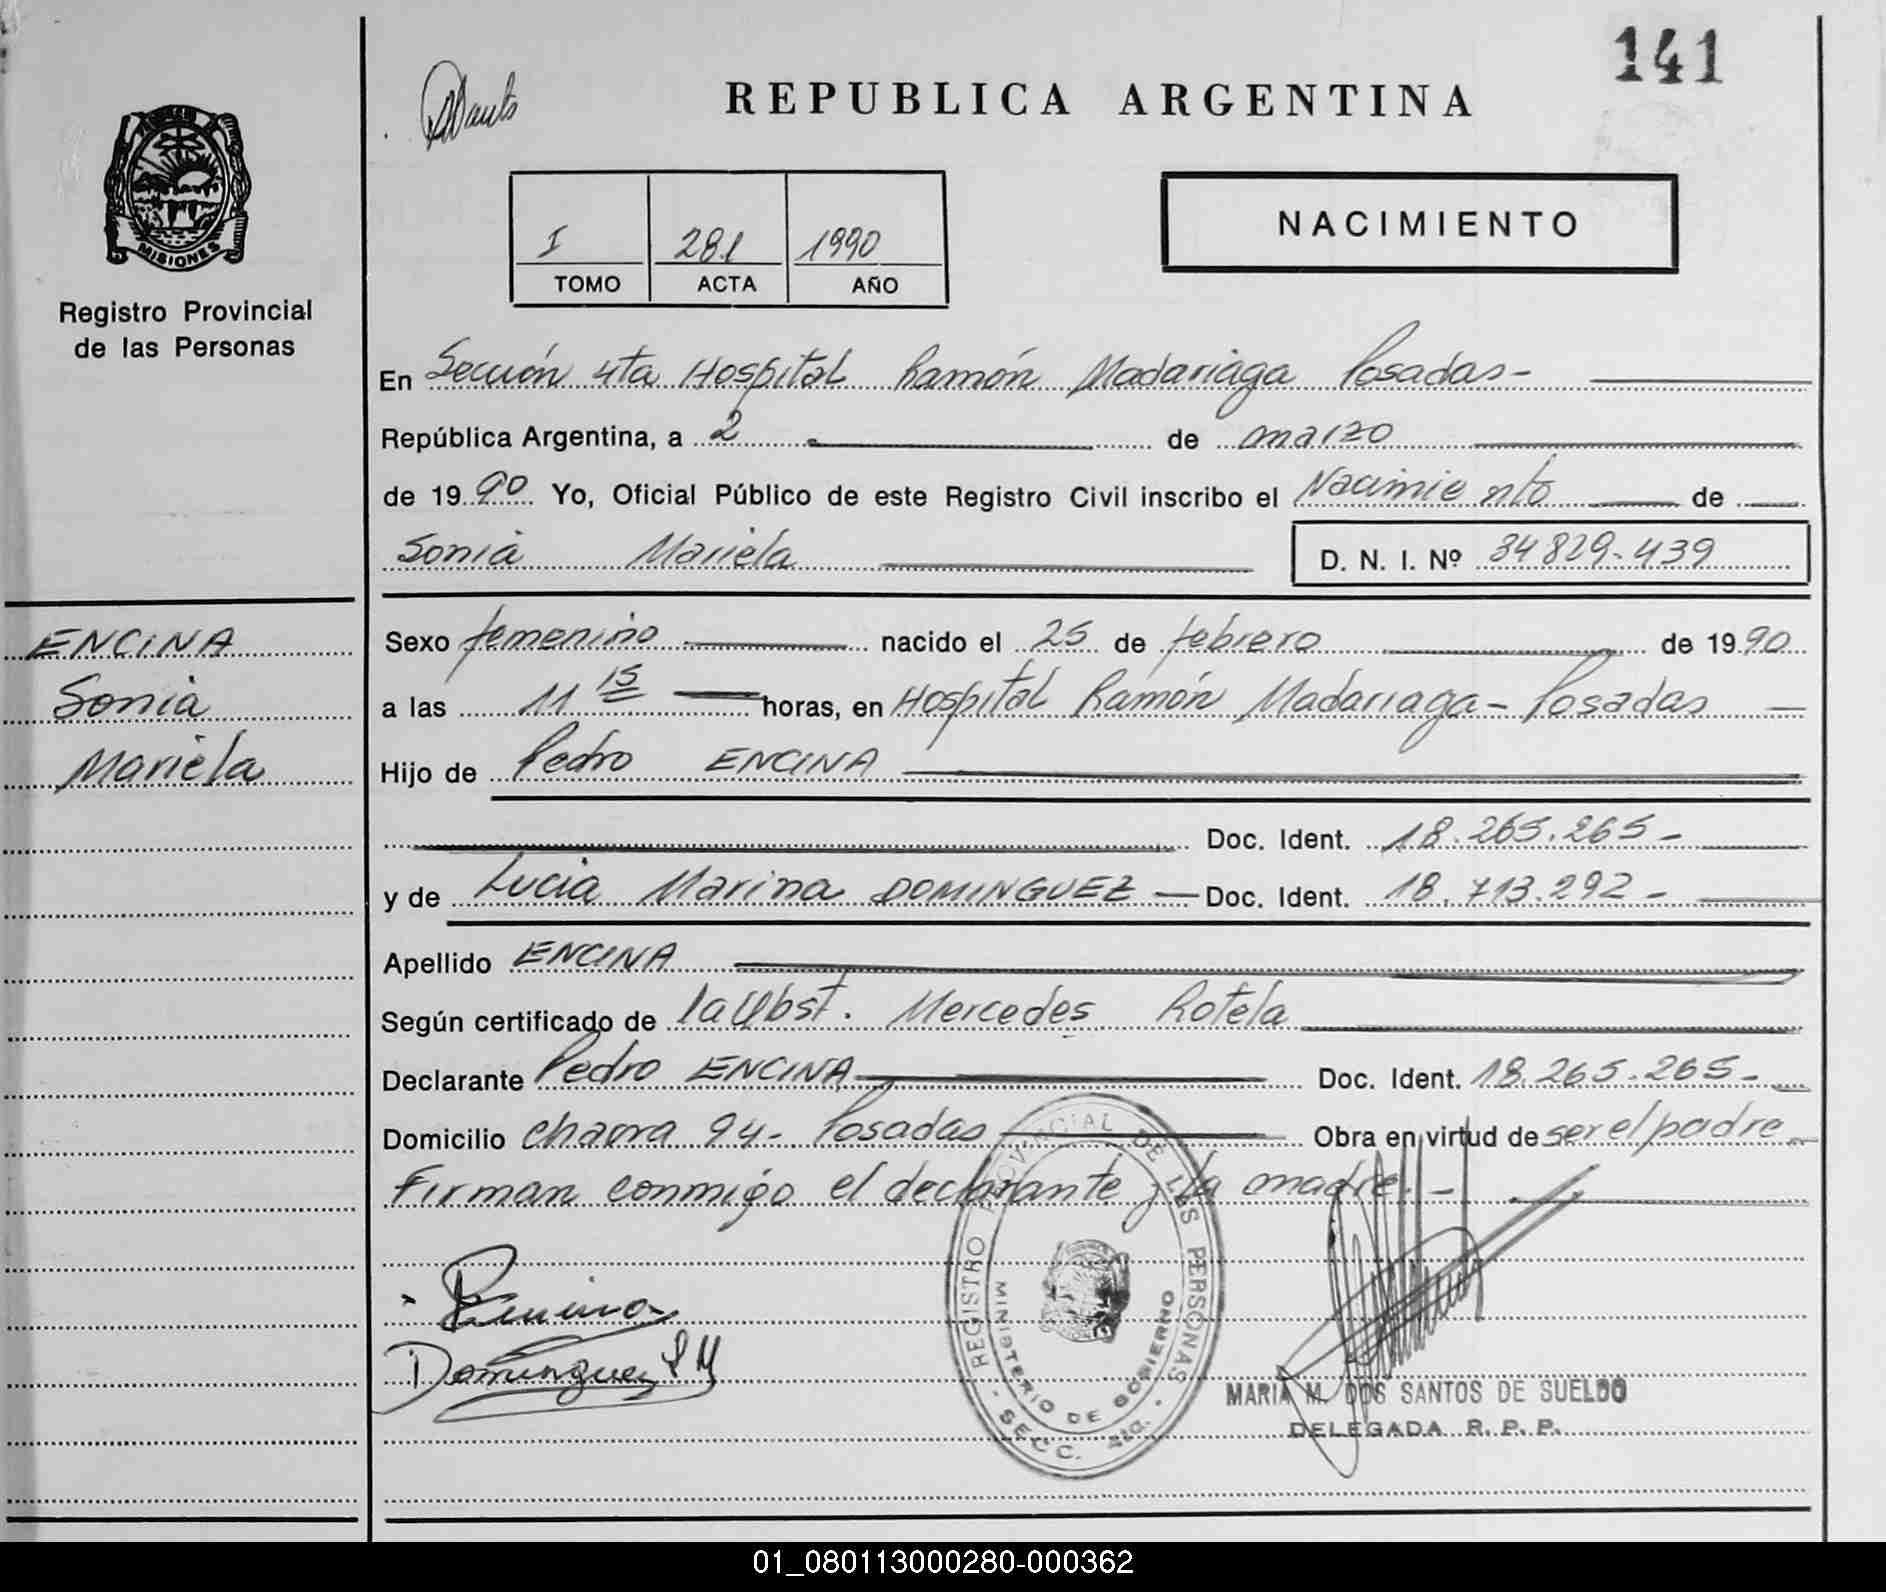 141
REPUBLICA ARGENTINA
MISIONES
Registro Provincial
de las Personas
NACIMIENTO
I 281 1990
TOMO ACTA AÑO
En Sección 4ta Hospital Ramón Madariaga Posadas-
República Argentina, a 2 de marzo
de 1990 Yo, Oficial Público de este Registro Civil inscribo el Nacimiento de
Sonia Mariela D. N. I. Nº 34829-439
ENCINA
Sonia
Mariela
Sexo femenino nacido el 25 de febrero de 1990
a las 11 15 horas, en Hospital Ramón Madariaga - Posadas
Hijo de Pedro ENCINA
Doc. Ident. 18.265.265-
y de Lucia Marina DOMINGUEZ Doc. Ident. 18.713.292-
Apellido ENCINA
Según certificado de la Obst. Mercedes Rotela
Declarante Pedro ENCINA Doc. Ident. 18.265.265-
Domicilio chacra 94- Posadas Obra en virtud de ser el padre
Firman conmigo el declarante y la madre.-
Dominguez L M
REGISTRO PROVINCIAL DE LAS PERSONAS
MINISTERIO DE GOBIERNO
SECC. 4ta.
MARIA M. DOS SANTOS DE SUELDO
DELEGADA R. P. P.
01_080113000280-000362